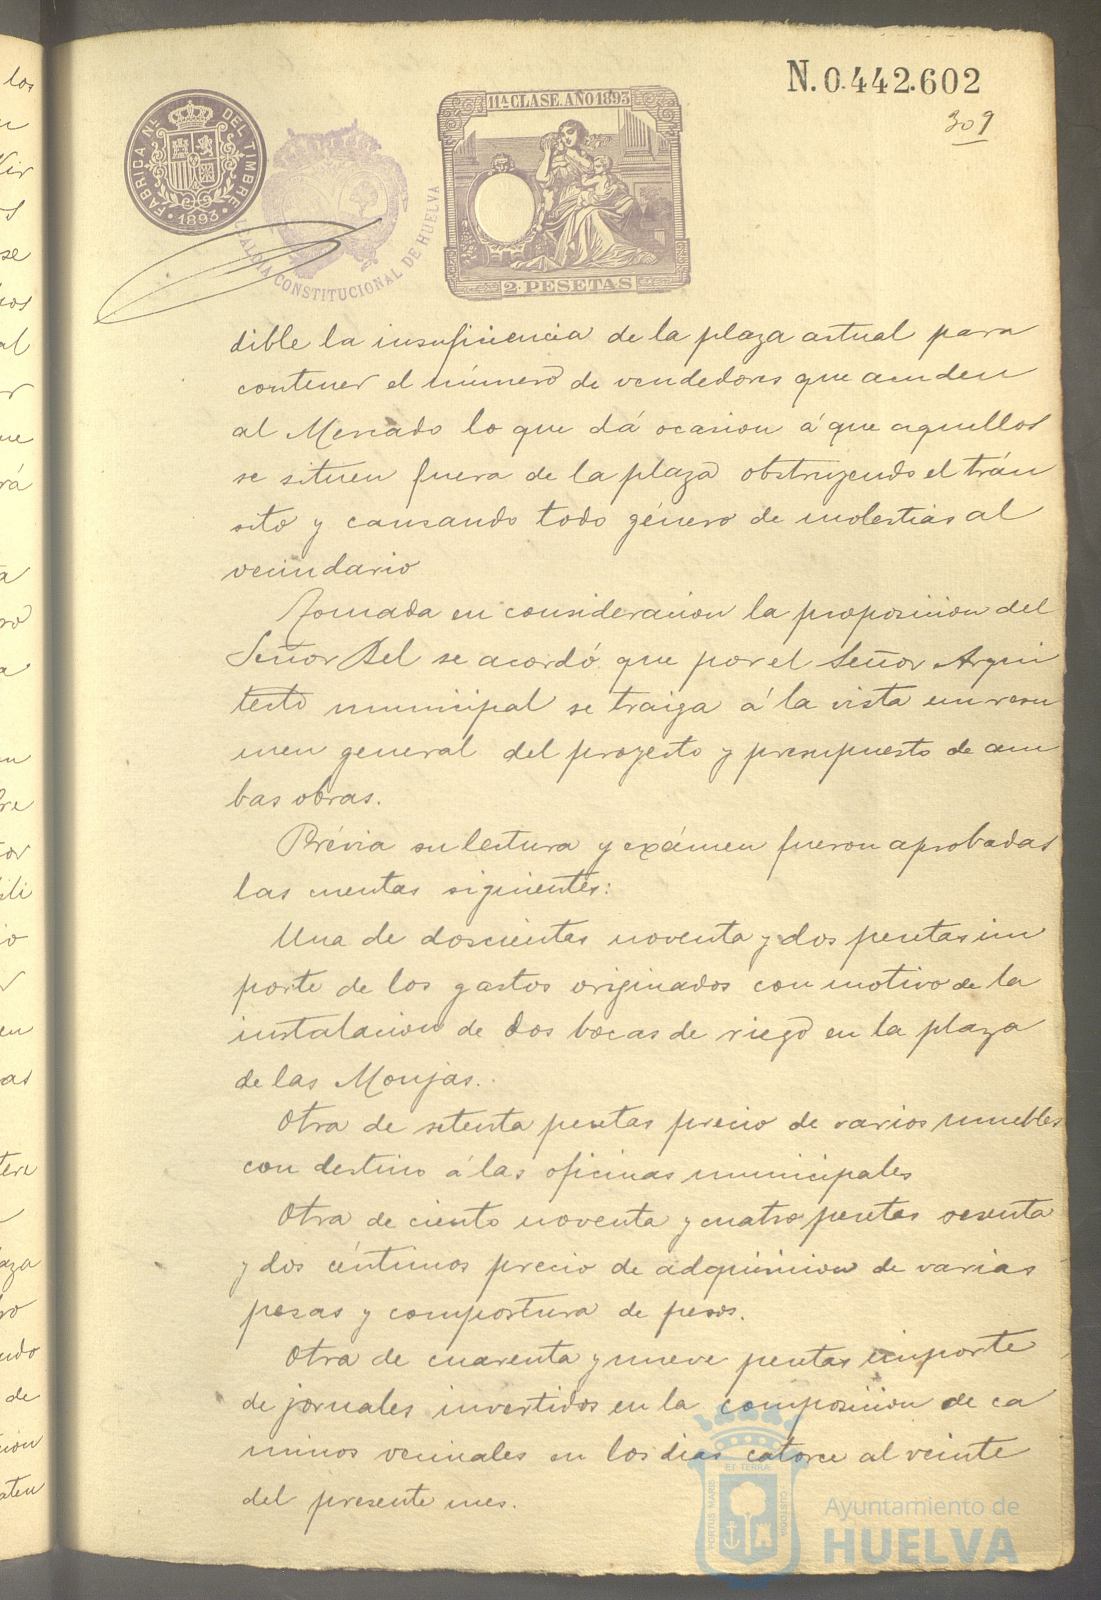 N. 0.442.602
309
FABRICA NL. DEL TIMBRE
1893
ALCALDIA CONSTITUCIONAL DE HUELVA
11ª CLASE. AÑO 1893
2 PESETAS
dible la insuficiencia de la plaza actual para
contener el número de vendedores que acuden
al Mercado lo que dá ocasion á que aquellos
se situen fuera de la plaza obstruyendo el trán
sito y causando todo género de molestias al
vecindario
Tomada en consideracion la proposicion del
Señor Bel se acordó que por el Señor Arqui
tecto municipal se traiga á la vista un resu
men general del proyecto y presupuesto de am
bas obras.
Prévia su lectura y exámen fueron aprobadas
las cuentas siguientes:
Una de doscientas noventa y dos pesetas im
porte de los gastos originados con motivo de la
instalacion de dos bocas de riego en la plaza
de las Monjas.
Otra de setenta pesetas precio de varios muebles
con destino á las oficinas municipales
Otra de ciento noventa y cuatro pesetas sesenta
y dos céntimos precio de adquisicion de varias
pesas y compostura de pesos.
Otra de cuarenta y nueve pesetas importe
de jornales invertidos en la composicion de ca
minos vecinales en los dias catorce al veinte
del presente mes.
PORTUS MARIS ET TERRAE CUSTODIA
Ayuntamiento de
HUELVA